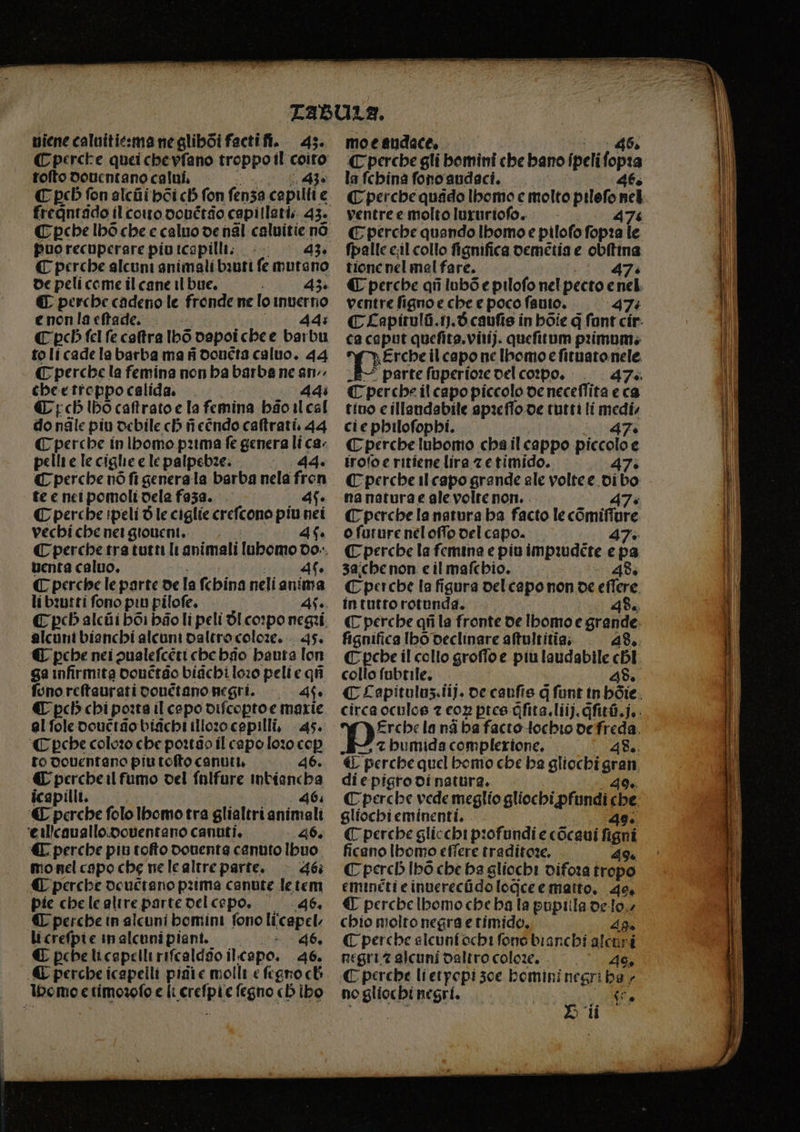 TABULA.
uiene caluitie:ma ne glibōi facti fi. 43.
⁋ perche quei che vſano troppo il coito
toſto douentano calui. 43.
⁋ pch̄ ſon alcūi hōi ch̄ ſon ſenza capilli e
freq̄ntādo il coito douētāo capillati. 43.
⁋ pche lhō che e caluo de nāl caluitie nō
puo recuperare piu icapilli. 43.
⁋ perche alcuni animali bꝛuti ſe mutano
de peli come il cane il bue. 43.
⁋ perche cadeno le fronde ne lo inuerno
e non la eſtade. 44.
⁋ pch̄ ſel ſe caſtra lhō dapoi che e barbu
to li cade la barba ma n̄ douēta caluo. 44
⁋ perche la femina non ha barba ne an//
che e troppo calida. 44.
⁋ pch̄ lhō caſtrato e la femina hāo il cal
do nāle piu debile ch̄ n̄ cēndo caſtrati. 44
⁋ perche in lhomo pꝛima ſe genera li ca/
pelli e le ciglie e le palpebꝛe. 44.
⁋ perche nō ſi genera la barba nela fron
te e nei pomoli dela faza. 45.
⁋ perche ipeli d̄ le ciglie creſcono piu nei
vechi che nei gioueni. 45.
⁋ perche tra tutti li animali luhomo do-
uenta caluo. 45.
⁋ perche le parte de la ſchina neli anima
li bꝛutti ſono piu piloſe. 45.
⁋ pch̄ alcūi hōi hāo li peli d̄l coꝛpo negꝛi
alcuni bianchi alcuni daltro coloꝛe. 45.
⁋ pche nei ꝯualeſcēti che hāo hauta lon
ga infirmita douētāo biāchi loꝛo peli e qn̄
ſono reſtaurati douētano negri. 45.
⁋ pch̄ chi poꝛta il capo diſcopto e maxie
al ſole douētāo biāchi illoꝛo capilli. 45.
⁋ pche coloꝛo che poꝛtāo il capo loꝛo cop
to douentano piu toſto canuti. 46.
⁋ perche il fumo del ſulfure inbiancha
icapilli. 46.
⁋ perche ſolo lhomo tra glialtri animali
e illcauallo.douentano canuti. 46.
⁋ perche piu toſto douenta canuto lhuo
mo nel capo che ne le altre parte. 46.
⁋ perche douētano pꝛima canute le tem
pie che le altre parte del capo. 46.
⁋ perche in alcuni homini ſono li capel/
li creſpi e in alcuni piani. 46.
⁋ pche li capelli riſcaldāo il capo. 46.
⁋ perche icapelli piāi e molli e ſegno ch̄
lhomo e timoꝛoſo e li creſpi e ſegno ch̄ lho
mo e audace. 46.
⁋ perche gli homini che hano ipeli ſopꝛa
la ſchina ſono audaci. 46.
⁋ perche quādo lhomo e molto piloſo nel
ventre e molto luxurioſo. 47.
⁋ perche quando lhomo e piloſo ſopꝛa le
ſpalle e il collo ſignifica demētia e obſtina
tione nel mal fare. 47.
⁋ perche qn̄ luhō e piloſo nel pecto e nel
ventre ſigno e che e poco ſauio. 47.
⁋ Capitulū.ij.d̄ cauſis in hōie q̄ ſunt cir-
ca caput queſita.viij. queſitum pꝛimum.
PErche il capo ne lhomo e ſituato nele
parte ſuperioꝛe del coꝛpo. 47.
⁋ perche il capo piccolo de neceſſita e ca
tiuo e illaudabile apꝛeſſo de tutti li medi/
ci e philoſophi. 47.
⁋ perche luhomo cha il cappo piccolo e
iroſo e ritiene lira ⁊ e timido. 47.
⁋ perche il capo grande ale volte e di bo
na natura e ale volte non. 47.
⁋ perche la natura ha facto le cōmiſſure
o ſuture nel oſſo del capo. 47.
⁋ perche la femina e piu impꝛudēte e pa
za che non e il maſchio. 48.
⁋ perche la figura del capo non de eſſere
in tutto rotunda. 48.
⁋ perche qn̄ la fronte de lhomo e grande
ſignifica lhō declinare aſtultitia. 48.
⁋ pche il collo groſſo e piu laudabile ch̄l
collo ſubtile. 48.
⁋ Capitulus.iij. de cauſis q̄ ſunt in hōie
circa oculos ⁊ eoꝝ ptes q̄ſita.liij.q̄ſitū.j.
PErche la nā ha facto lochio de freda
⁊ humida complexione. 48.
⁋ perche quel homo che ha gliochi gran
di e pigro di natura. 49.
⁋ perche vede meglio gliochi ꝓfundi che
gliochi eminenti. 49.
⁋ perche gliochi pꝛofundi e cōcaui ſigni
ficano lhomo eſſere traditoꝛe. 49.
⁋ perch̄ lhō che ha gliochi difoꝛa tropo
eminēti e inuerecūdo loq̄ce e matto. 49.
⁋ perche lhomo che ha la pupilla de lo./
chio molto negra e timido. 49.
⁋ perche alcuni ochi ſono bianchi alcuri
negri ⁊ alcuni daltro coloꝛe. 49.
⁋ perche li etyopi zoe homini negri ha/
no gliochi negri.
H ii